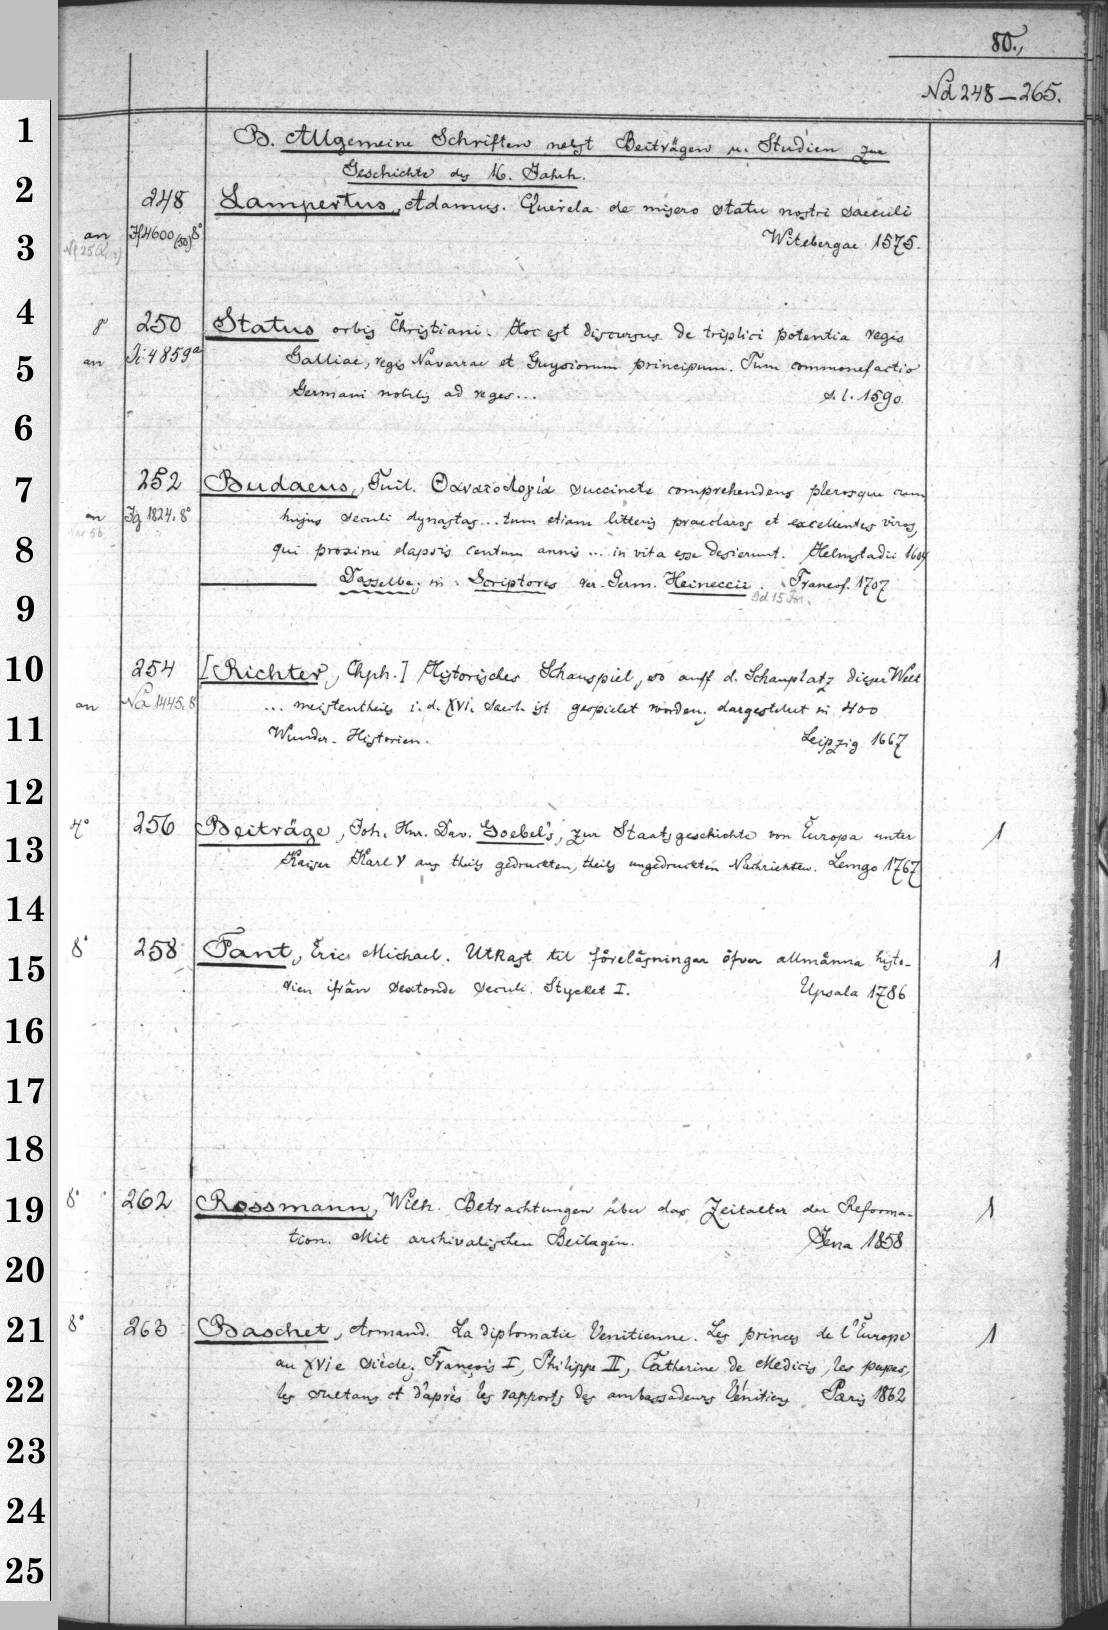 80.,
Nd 248—265.
B. Allgemeine Schriften nebst Beiträgen u. Studien zur
Geschichte des 16. Jahrh.
248 Lampertus, Adamus. Querela de misero statu nostri saeculi
an Jf 4600 (50) 8° Witebergae 1575.
8° 250 Status orbis Christiani. Hoc est discursus de triplici potentia regis
an Ji 4859a Galliae, regis Navarrae et Guysiorum principum. Tum commonefactio
Germani nobilis ad reges... s. l. 1590
252 Budaeus, Guil. Θανατολογία succincte comprehendens plerosque cum
an Jg 1824. 8° hujus seculi dynastas... tum etiam litteris praeclaros et excellentes viros,
qui proxime elapsis centum annis ... in vita esse desierunt. Helmstadii 1609
Dasselbe, in: Scriptores rer. Germ. Heineccii. Francof. 1707
Bd 15 Fol.
254 [Richter, Chph.] Historisches Schauspiel, so auff d. Schauplatz dieser Welt
an Na 1445. 8° ... meistentheils i. d. XVI. Saec. ist gespielet worden, dargestellet in 400
Wunder-Historien. Leipzig 1667
4° 256 Beiträge, Joh. Hnr. Dav. Goebel's, zur Staatsgeschichte von Europa unter 1
Kaiser Karl V aus theils gedruckten, theils ungedruckten Nachrichten. Lemgo 1767
8° 258 Fant, Eric Michael. Utkast til föreläsningar öfver allmänna histo- 1
rien ifrån sextonde seculi. Stycket I. Upsala 1786
8° 262 Rossmann, Wilh. Betrachtungen über das Zeitalter der Reforma- 1
tion. Mit archivalischen Beilagen. Jena 1858
8° 263 Baschet, Armand. La diplomatie Venitienne. Les princes de l'Europe 1
au XVIe siècle, François I, Philippe II, Catherine de Medicis, les papes,
les sultans et d'après les rapports des ambassadeurs Vénitiens Paris 1862
1
2
3
4
5
6
7
8
9
10
11
12
13
14
15
16
17
18
19
20
21
22
23
24
25